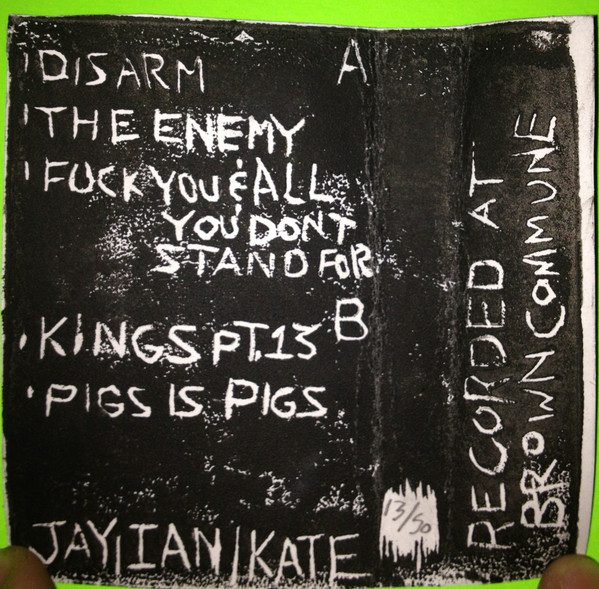 DISARM A
THE ENEMY
FUCK YOU & ALL
YOU DON'T
STAND FOR
B
KINGS PT.13
PIGS IS PIGS
JAY/IAN/KATE
13/50
RECORDED AT
BROWN COMMUNE